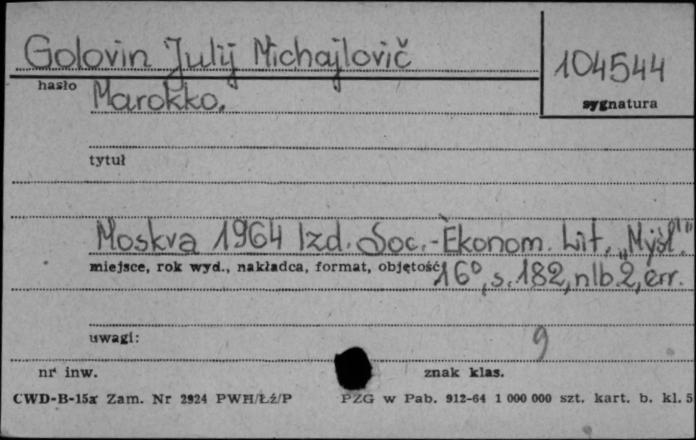 Golovin Julij Michajlovič
104544
hasło
sygnatura
Marokko.
tytuł
Moskva 1964 Izd. Soc.-Èkonom. Lit. „Myśl'".
miejsce, rok wyd., nakładca, format, objętość
16°, s. 182, nlb. 2, err.
uwagi:
9
nr inw.
znak klas.
CWD-B-15a Zam. Nr 2924 PWH/Łź/P
PZG w Pab. 912-64 1 000 000 szt. kart. b. kl. 5